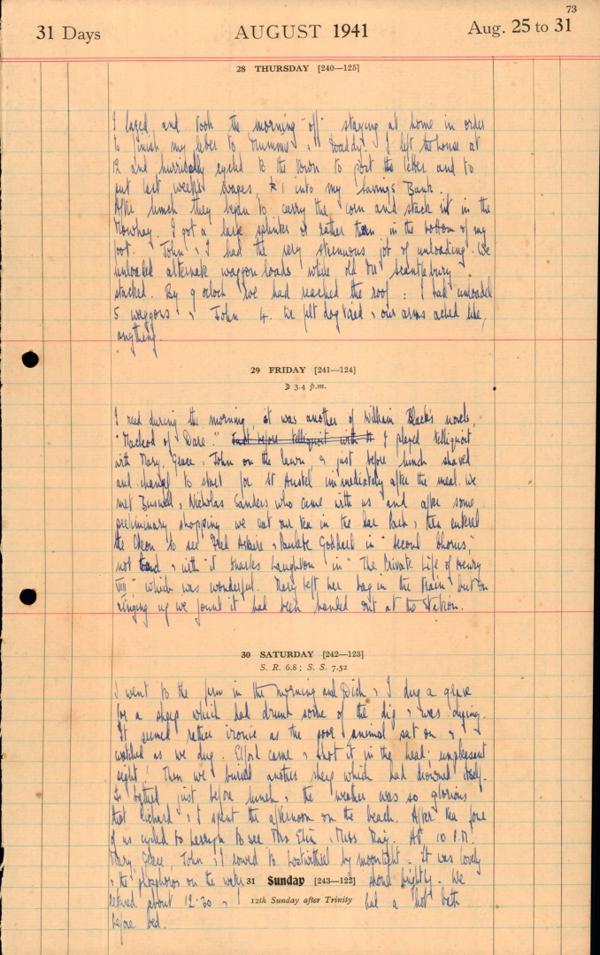 73
31 Days AUGUST 1941 Aug. 25 to 31
28 THURSDAY [240—125]
I lazed and took the morning "off" staying at home in order
to finish my letter to Mummie & Daddy. I left the house at
12 and hurriedly cycled to the town to post the letter and to
put last weeks wages, £1 into my Savings Bank.
After lunch they began to carry the corn and stack it in the
Mowhay. I got a large splinter of rather thorn in the bottom of my
foot. John & I had the very strenuous job of unloading. We
unloaded alternate waggon loads while old Mr Scantlebury
stacked. By 9 oclock we had reached the roof: I had unloaded
5 waggons & John 4. We felt dog tired & our arms ached like
anything.
29 FRIDAY [241—124]
3.4 p.m.
I read during the morning it was another of William Black's novels
"Macleod of Dare." Just before telliquoit with I played telliquoit
with Mary, Grace & John on the lawn & just before lunch shaved
and changed to start for St Austell immediately after the meal. We
met & Nicholas Sanders who came with us and after some
preliminary shopping we eat our tea in the Park, then entered
the Odeon to see Fred Astaire & Paulette Goddard in "Second Chorus,"
not & with it Charles Laughton in "The Private Life of Henry
VIII" which was wonderful. Mary left her bag in the train but on
ringing up we found it had been handed out at the Station.
30 SATURDAY [242—123]
S. R. 6.8; S. S. 7.52
I went to the farm in the morning and Dick & I dug a grave
for a sheep which had drunk some of the dip & was dying.
It seemed rather ironic as the poor animal sat on &
watched as we dug. Elford came & shot it in the head: unpleasant
sight! Then we buried another sheep which had drowned itself.
I bathed just before lunch & the weather was so glorious
that Richard & I spent the afternoon on the beach. After tea four
of us cycled to to see Mrs & Miss May. At 10 P.M.
Mary, Grace, John & I rowed to Lostwithiel by moonlight. It was lovely
& the phosphorus on the water shone brightly. We
31 Sunday [243—122]
retired about 12.30 & I had a hot bath
12th Sunday after Trinity
before bed.